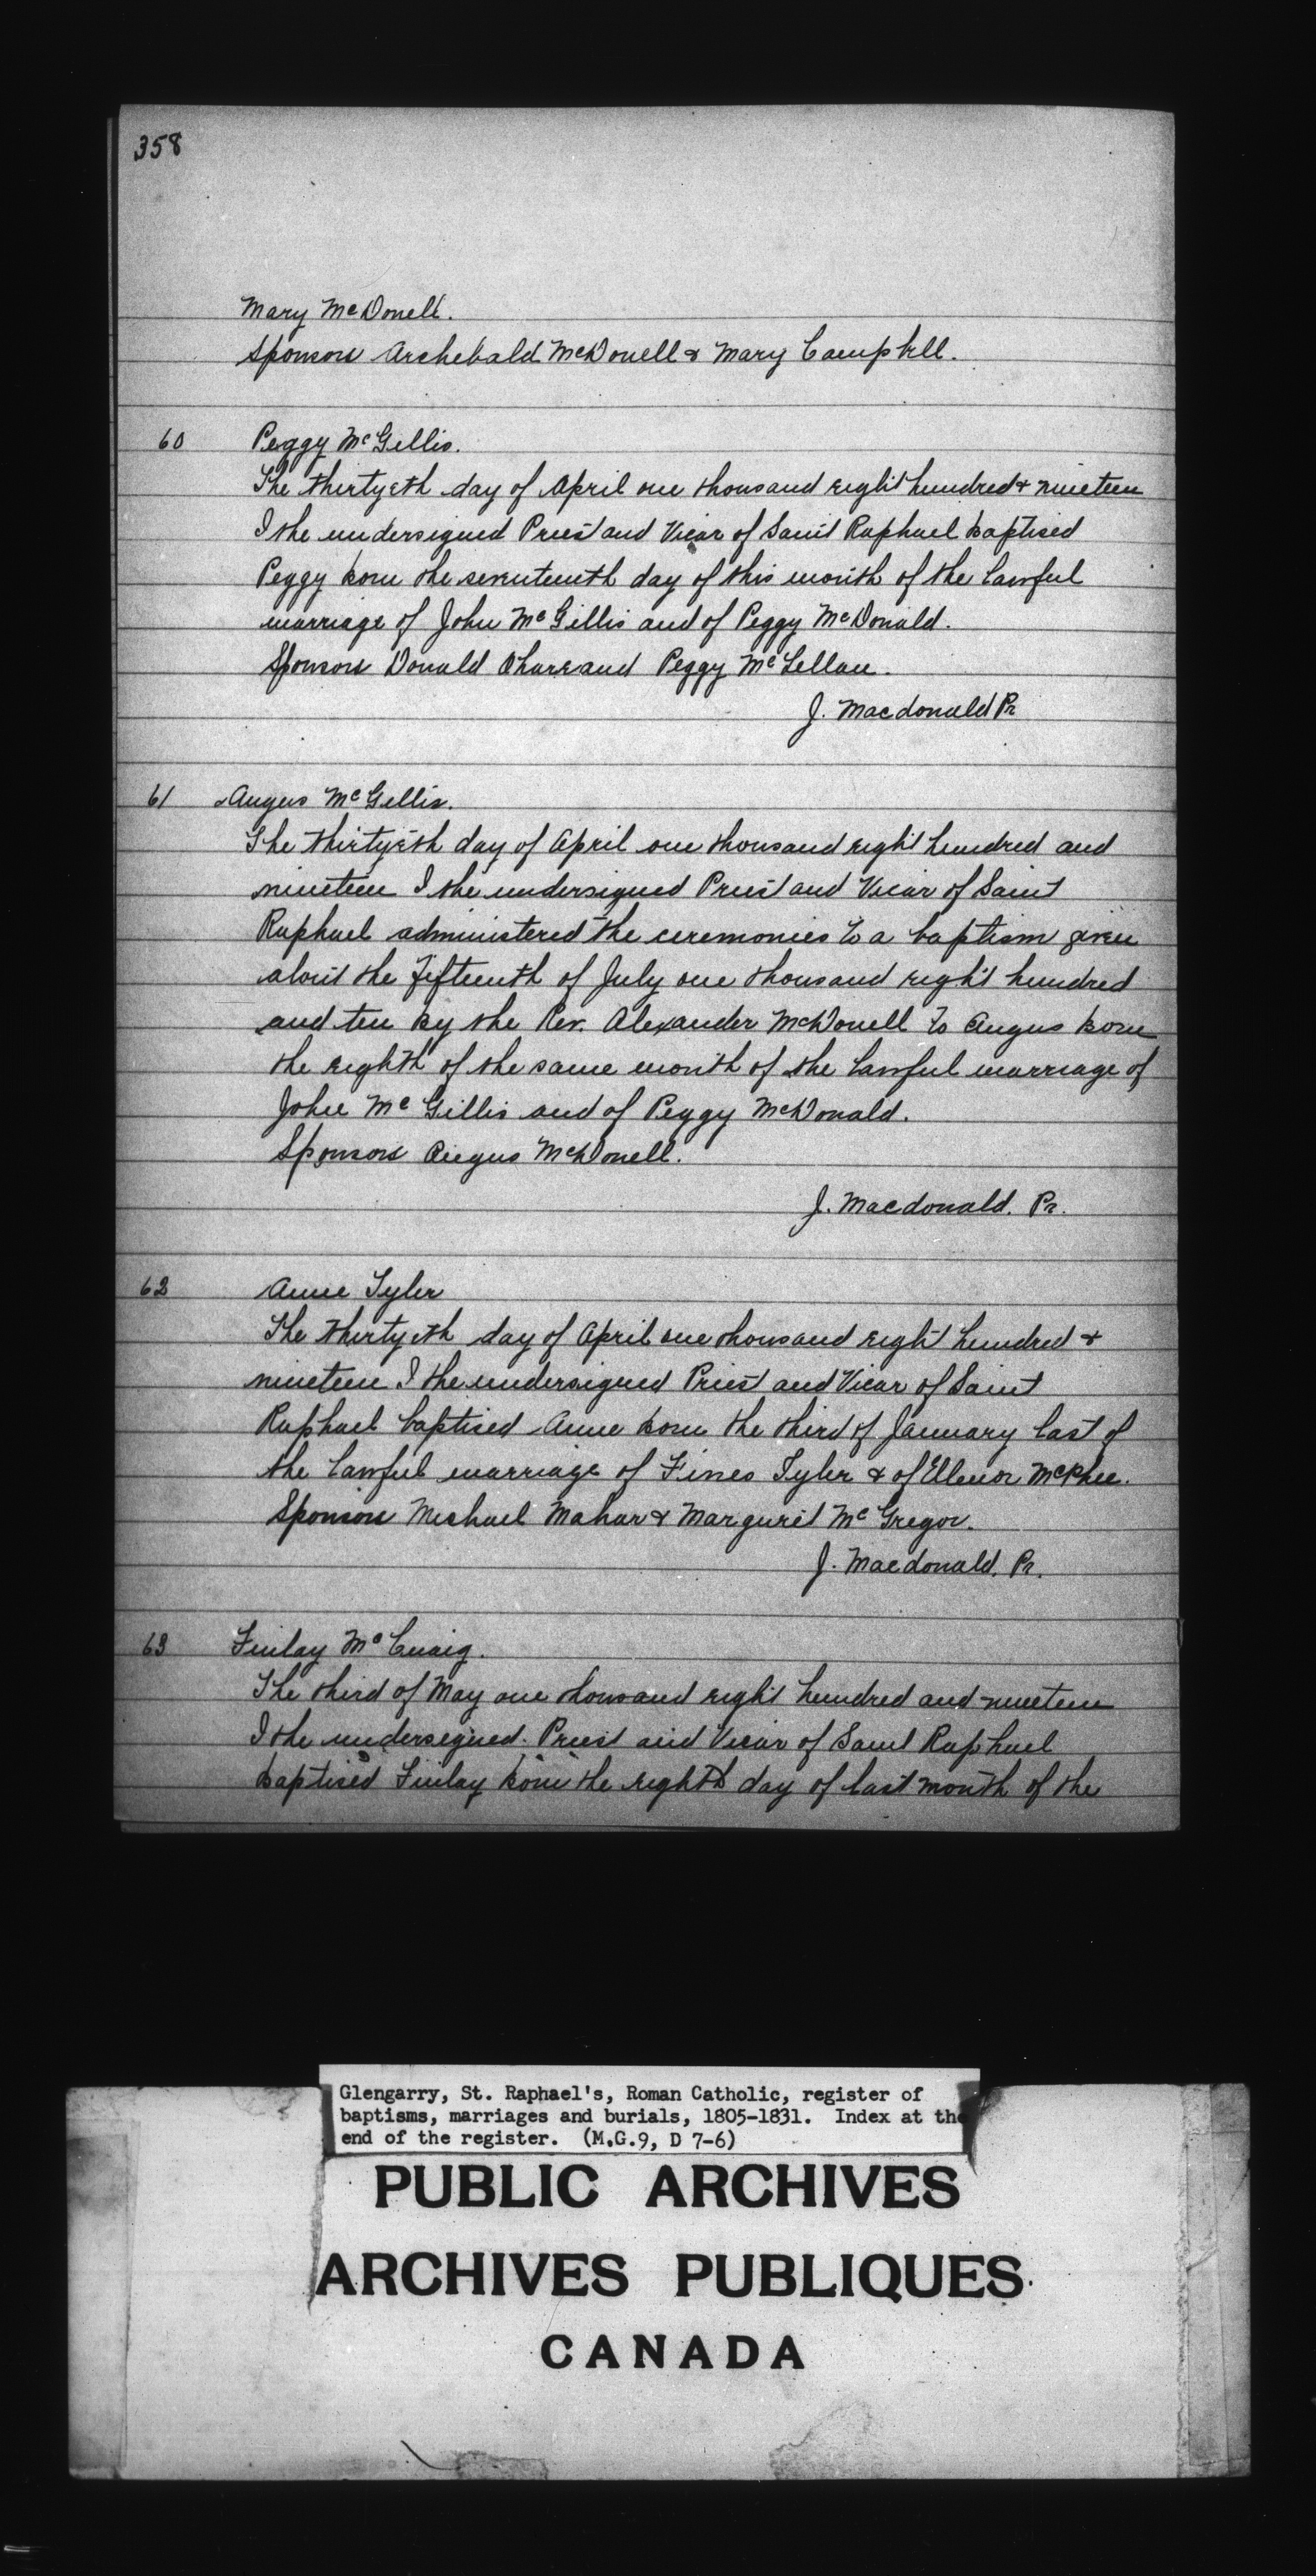 358
Mary McDonell.
Sponsors Archebald McDonell & Mary Campbell.
60 Peggy McGillis.
The thirtyeth day of April one thousand eight hundred & nineteen
I the undersigned Priest and Vicar of Saint Raphael baptised
Peggy born the seventeenth day of this month of the lawful
marriage of John McGillis and of Peggy McDonald.
Sponsors Donald and Peggy McLellan.
J. Macdonald Pr
61 Angus McGillis.
The thirtyeth day of April one thousand eight hundred and
nineteen I the undersigned Priest and Vicar of Saint
Raphael administered the ceremonies to a baptism given
about the fifteenth of July one thousand eight hundred
and ten by the Rev. Alexander McDonell to Angus born
the eighth of the same month of the lawful marriage of
John McGillis and of Peggy McDonald.
Sponsors Angus McDonell.
J. Macdonald. Pr.
62 Anne Tyler
The thirtyeth day of April one thousand eight hundred &
nineteen I the undersigned Priest and Vicar of Saint
Raphael baptised Anne born the third of January last of
the lawful marriage of Tyler & of Ellenor McPhee.
Sponsors Michael Mahar & Margaret McGregor.
J. Macdonald. Pr.
63 Finlay McCuaig.
The third of May one thousand eight hundred and nineteen
I the undersigned Priest and Vicar of Saint Raphael
baptised Finlay born the eighth day of last month of the
Glengarry, St. Raphael's, Roman Catholic, register of
baptisms, marriages and burials, 1805-1831. Index at the
end of the register. (M.G.9, D 7-6)
PUBLIC ARCHIVES
ARCHIVES PUBLIQUES
CANADA